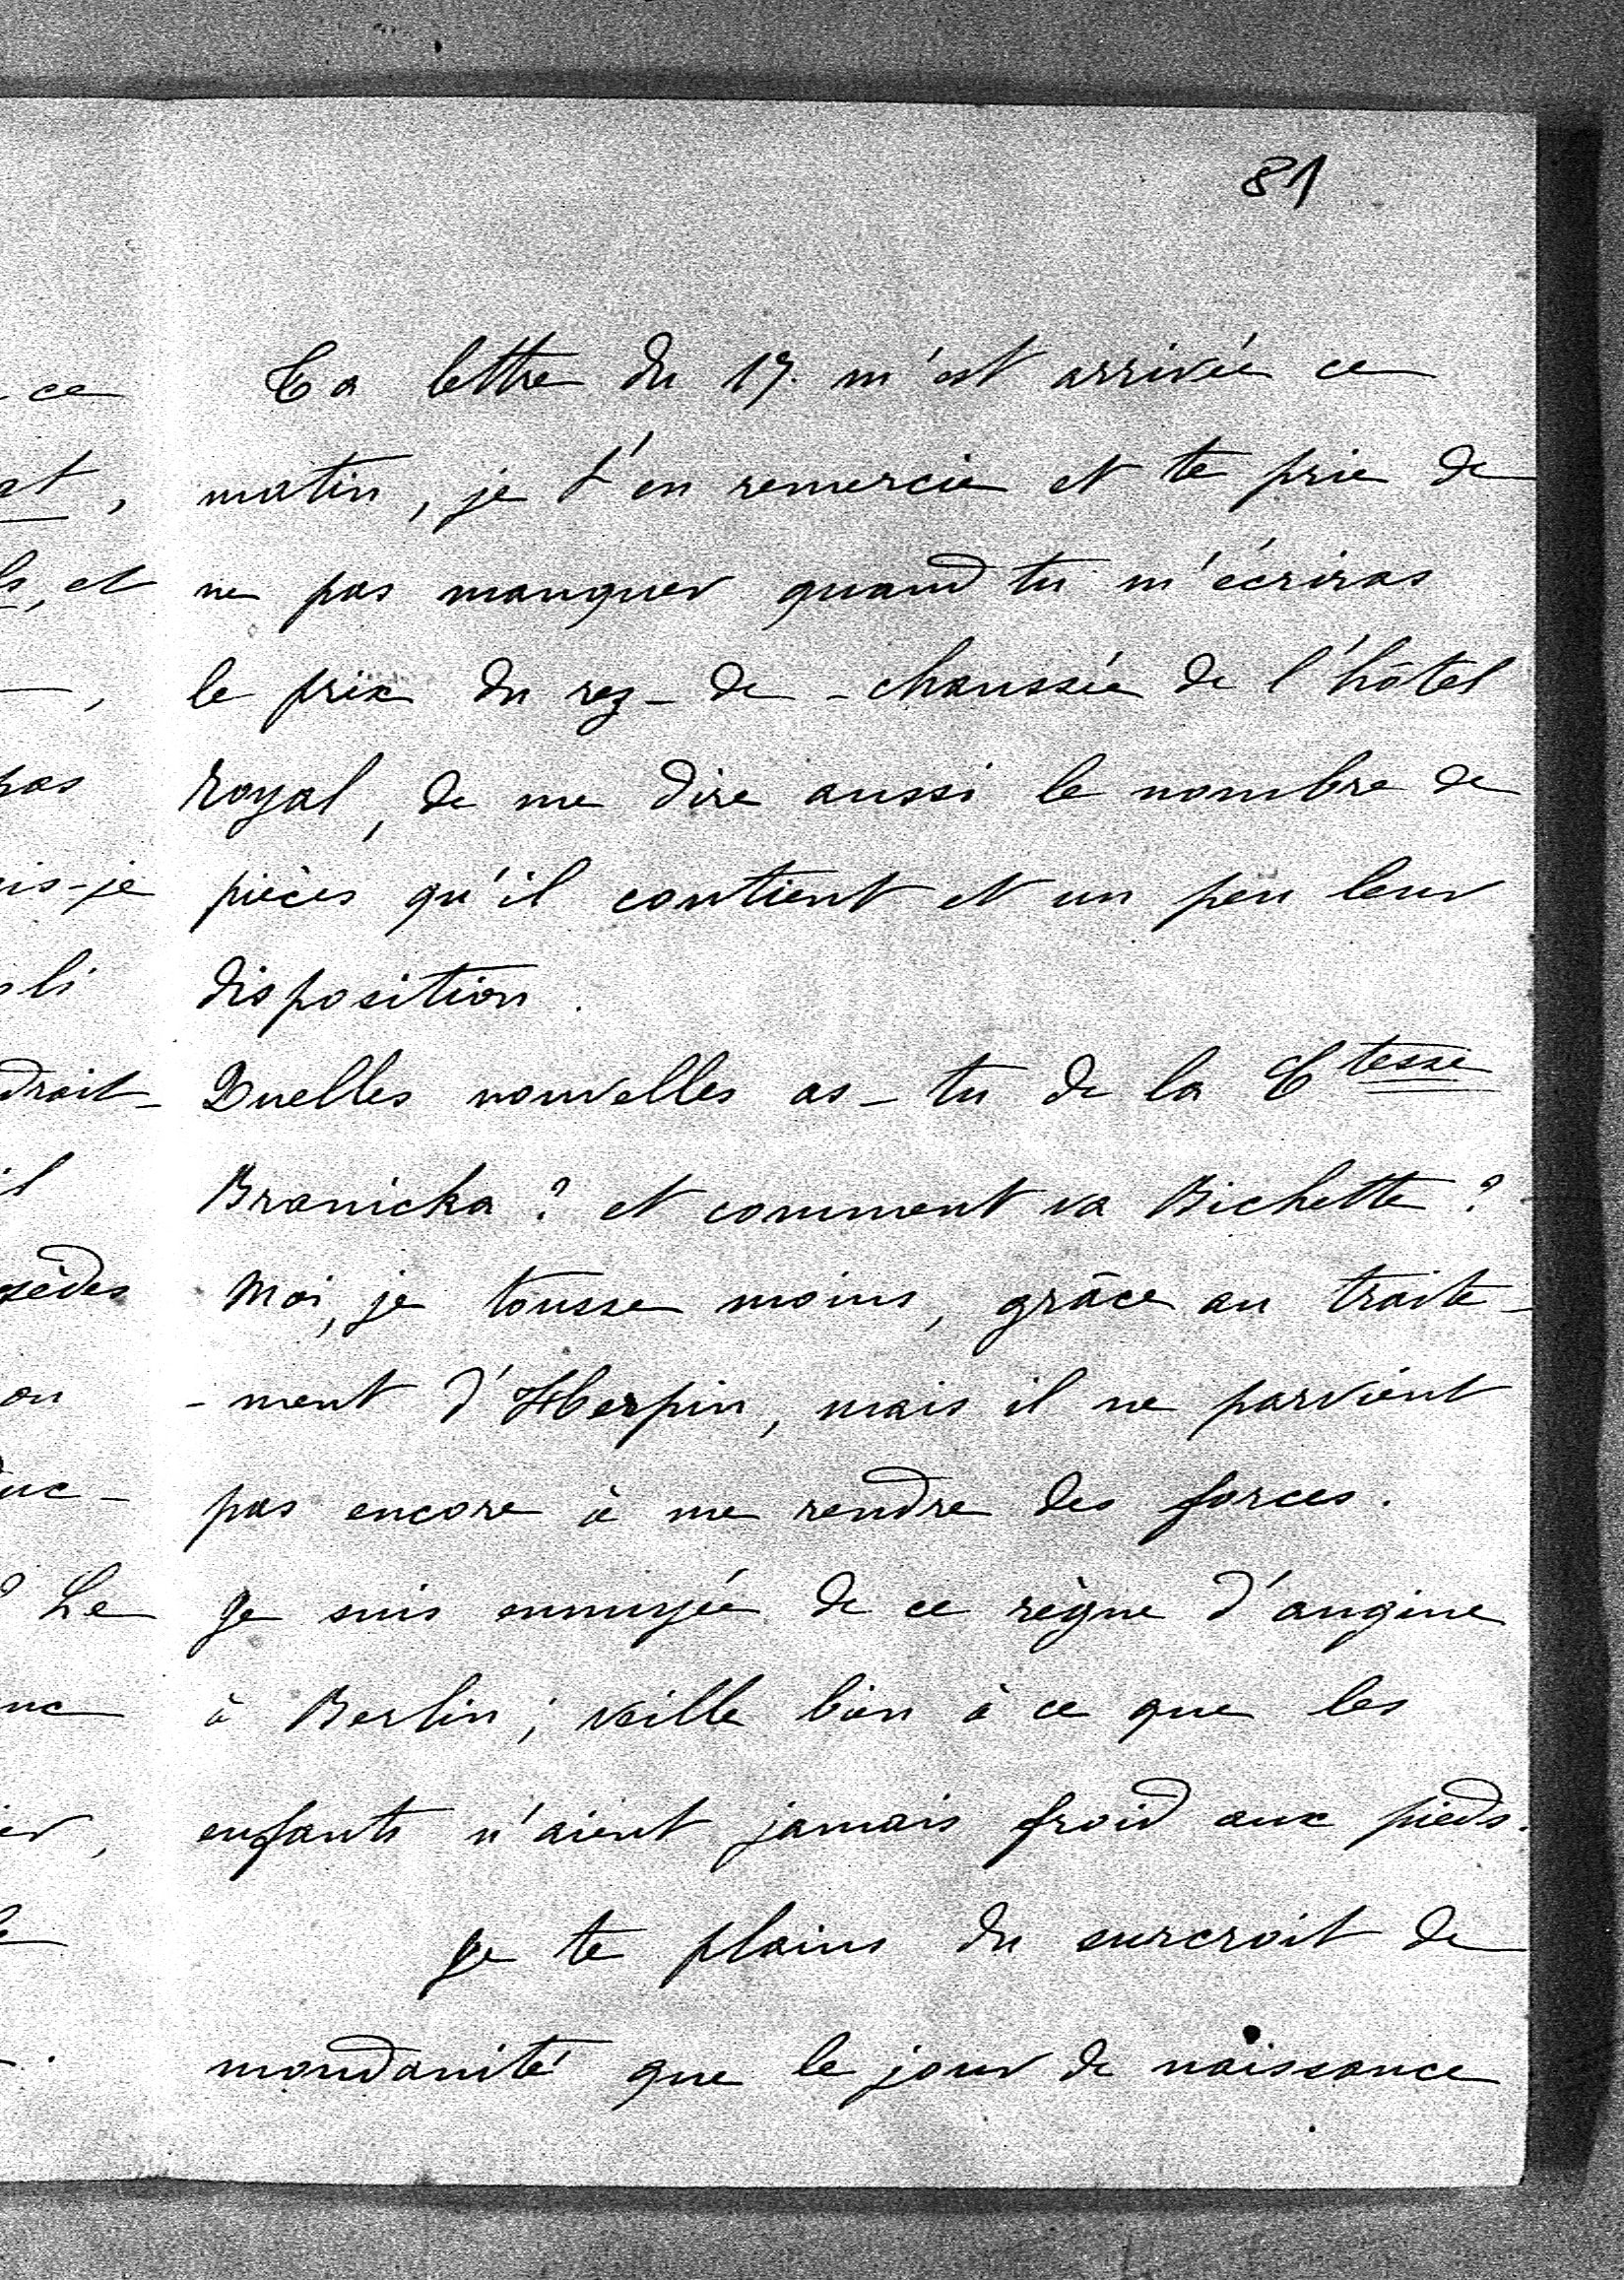 81
Ta lettre du 17. m'est arrivée ce
matin, je t'en remercie et te prie de
ne pas manquer quand tu m'écriras
le prix du rez-de-chaussée de l'hôtel
royal, de me dire aussi le nombre de
pièces qu'il contient et un peu leur
disposition.
Quelles nouvelles as-tu de la Ctesse
Branicka? et comment va Bichette?
Moi, je tousse moins, grâce au traite-
-ment d'Herpin, mais il ne parvient
pas encore à me rendre des forces.
Je suis ennuyée de ce règne d'angine
à Berlin; veille bien à ce que les
enfants n'aient jamais froid aux pieds.
Je te plains du surcroit de
mondanité que le jour de naissance